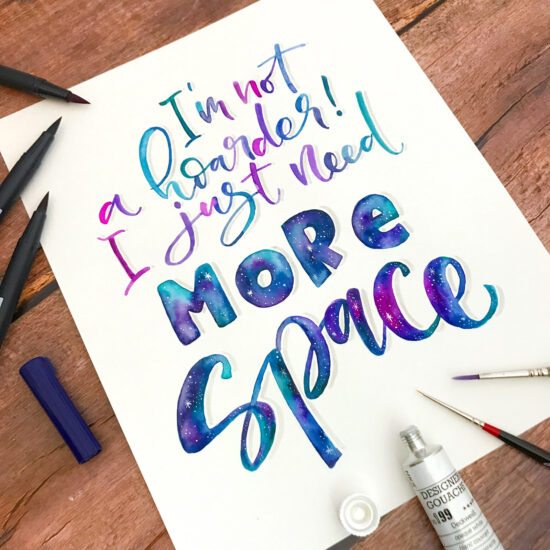 I'm not
a hoarder!
I just need
MORe
space
DESIGNE
GOUACH